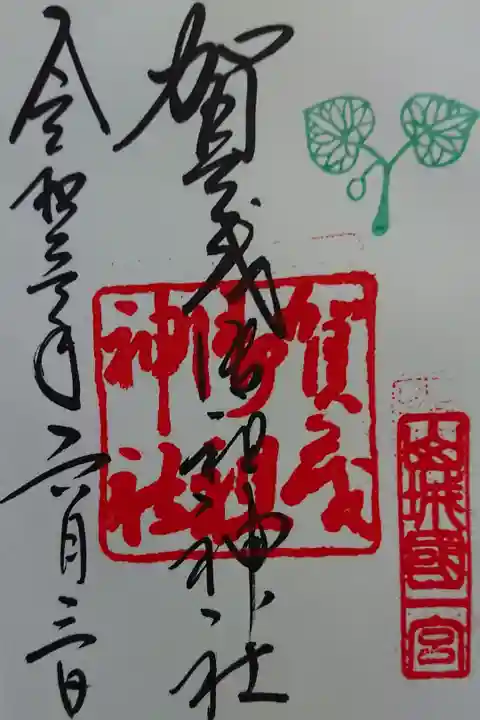 山城國一宮
賀茂御祖神社
賀茂
御祖
神社
令和三年六月三日